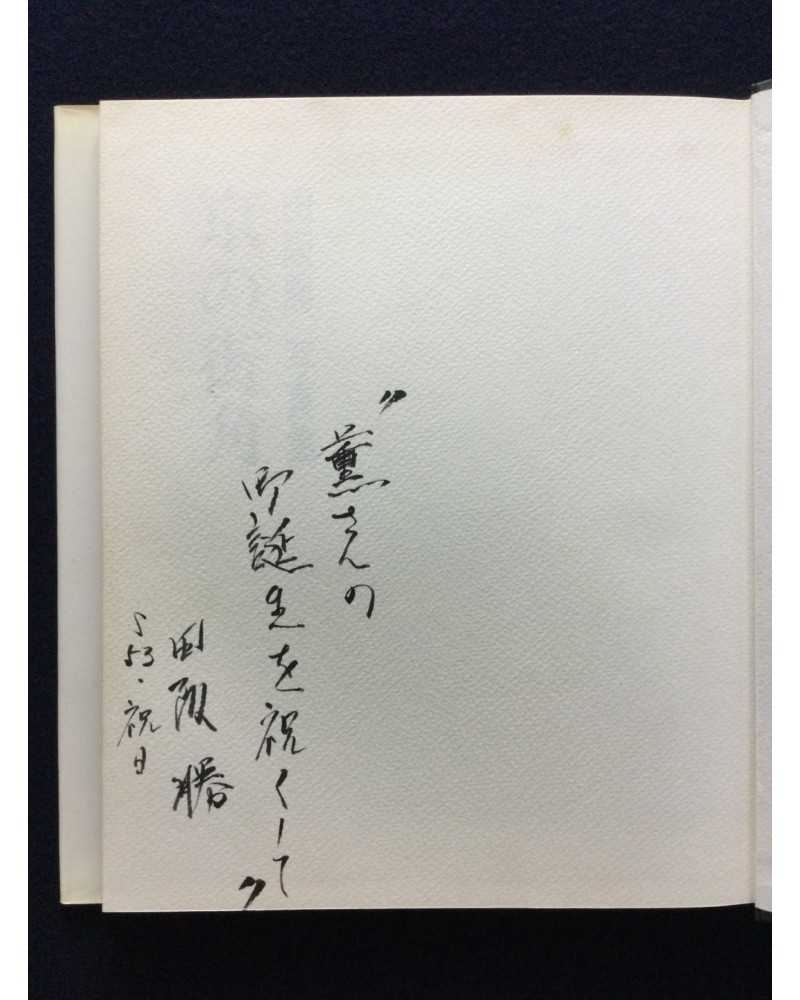 〝薫さんの
御誕生を祝くして〟
阪 勝
S53・祝日